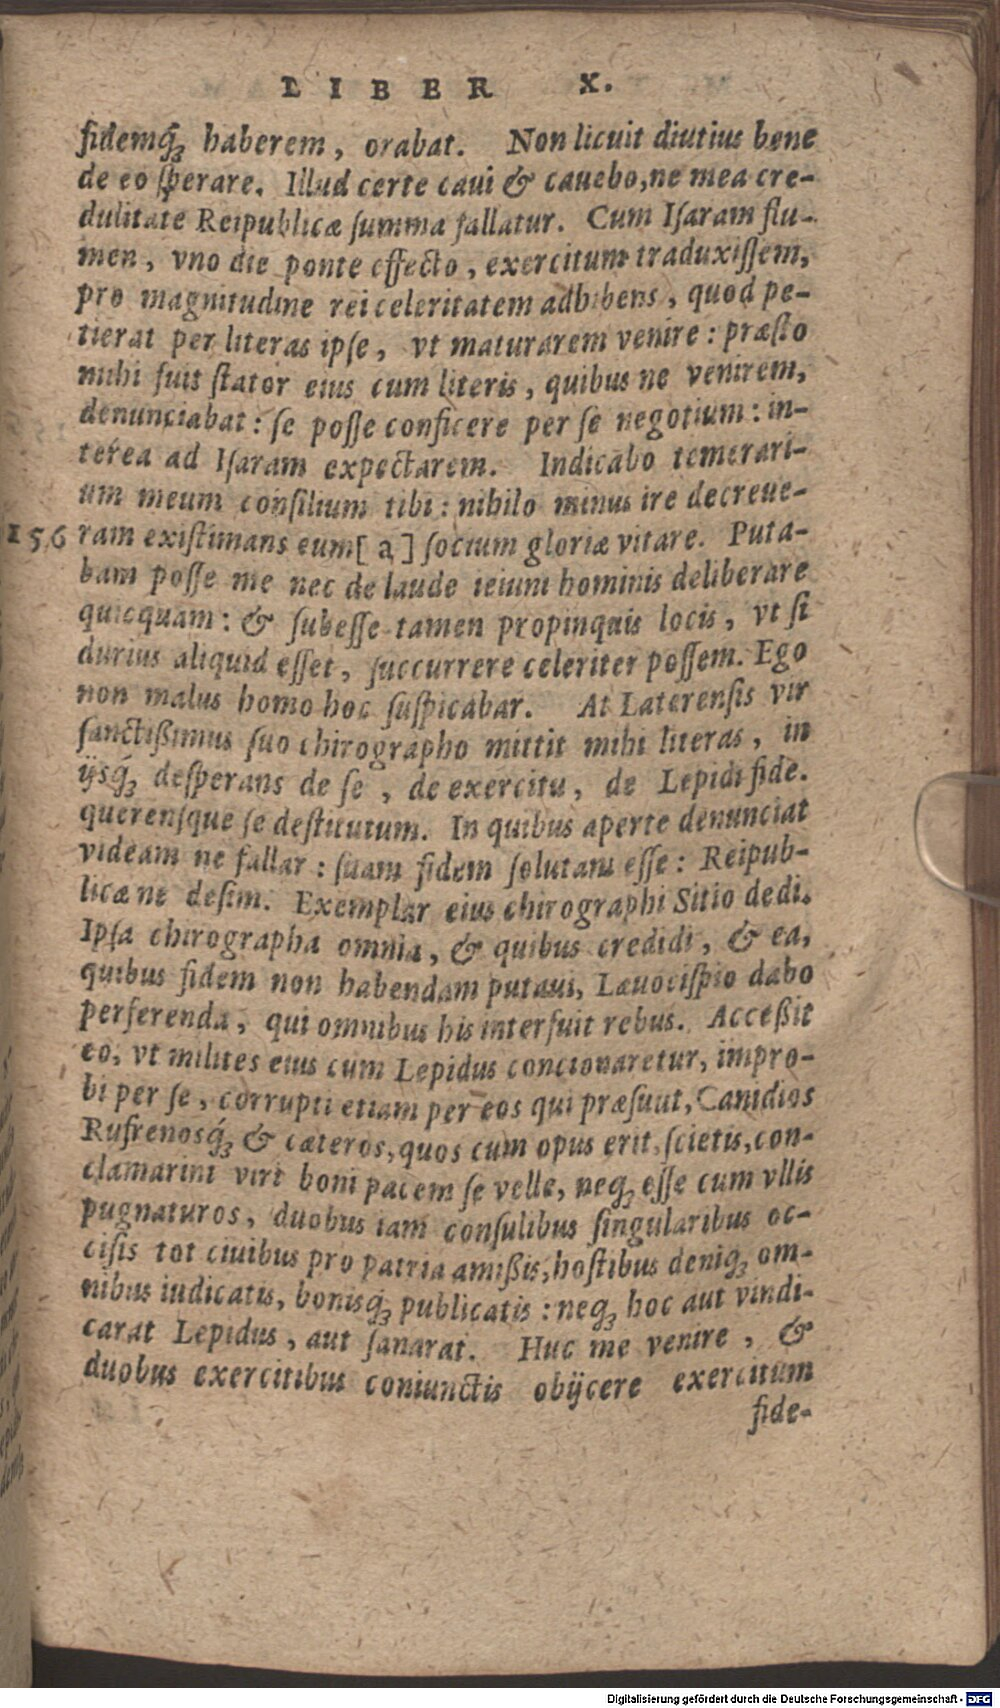 LIBER X.
fidemq́; haberem, orabat. Non licuit diutius bene
de eo sperare. Illud certe caui & cauebo, ne mea cre-
dulitate Reipublicæ summa fallatur. Cum Isaram flu-
men, vno die ponte effecto, exercitum traduxissem,
pro magnitudine rei celeritatem adhibens, quod pe-
tierat per literas ipse, vt maturarem venire: præsto
mihi fuit stator eius cum literis, quibus ne venirem,
denunciabat: se posse conficere per se negotium: in-
terea ad Isaram expectarem. Indicabo temerari-
um meum consilium tibi: nihilo minus ire decreue-
156 ram existimans eum [a] socium gloriæ vitare. Puta-
bam posse me nec de laude ieiuni hominis deliberare
quicquam: & subesse tamen propinquis locis, vt si
durius aliquid esset, succurrere celeriter possem. Ego
non malus homo hoc suspicabar. At Laterensis vir
sanctißimus suo chirographo mittit mihi literas, in
ijsq́; desperans de se, de exercitu, de Lepidi fide.
querensque se destitutum. In quibus aperte denunciat
videam ne fallar: suam fidem solutam esse: Reipub-
licæ ne desim. Exemplar eius chirographi Sitio dedi.
Ipsa chirographa omnia, & quibus credidi, & ea,
quibus fidem non habendam putaui, Læuocispio dabo
perferenda, qui omnibus his interfuit rebus. Acceßit
eo, vt milites eius cum Lepidus concionaretur, impro-
bi per se, corrupti etiam per eos qui præsunt, Canidios
Rufrenosq́; & cæteros, quos cum opus erit, scietis, con-
clamarint viri boni pacem se velle, neq; esse cum vllis
pugnaturos, duobus iam consulibus singularibus oc-
cisis tot ciuibus pro patria amißis, hostibus deniq́; om-
nibus iudicatis, bonisq́; publicatis: neq; hoc aut vindi-
carat Lepidus, aut sanarat. Huc me venire, &
duobus exercitibus coniunctis obijcere exercitum
fide-
Digitalisierung gefördert durch die Deutsche Forschungsgemeinschaft - DFG